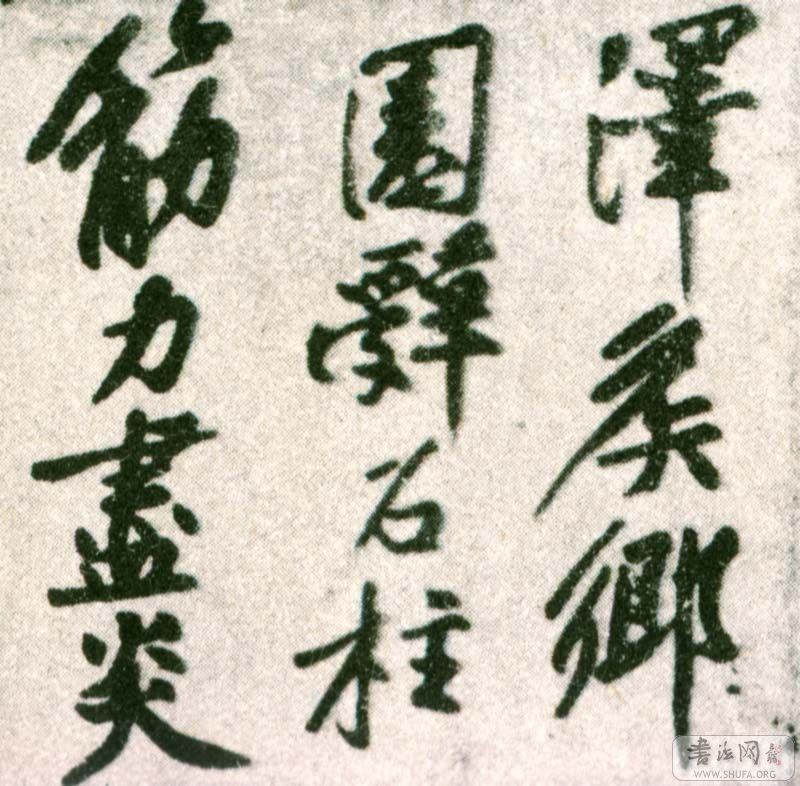 澤侯鄉
園辭石柱
筋力盡炎
書法网
WWW.SHUFA.ORG